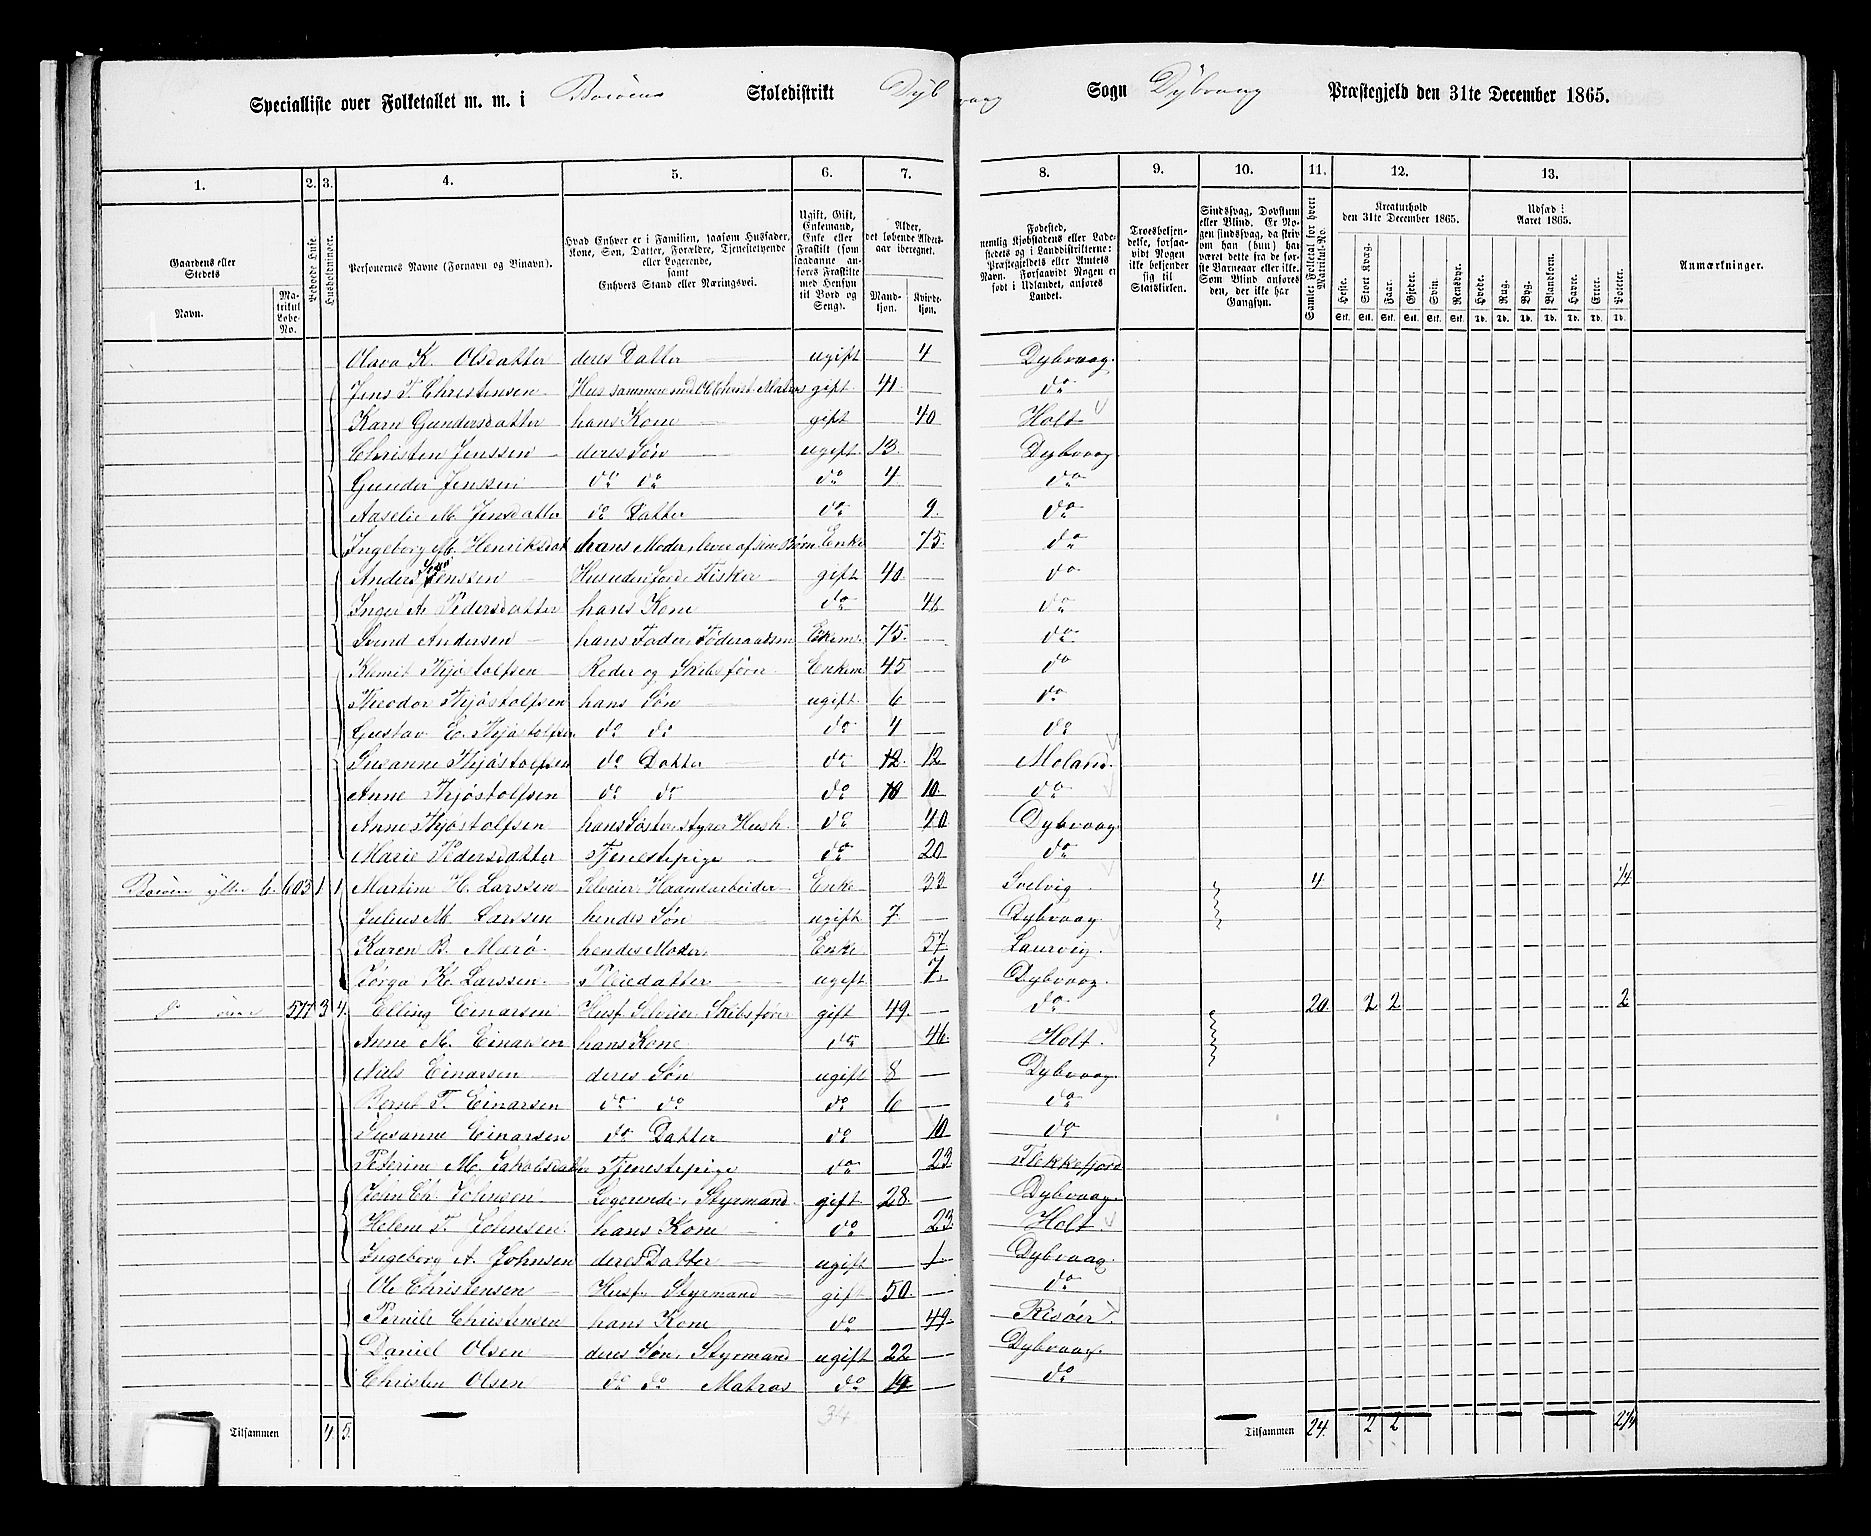 Specialliste over Folketallet m. m. i Borøens Skoledistrikt Dybvaag Sogn Dybvaag Præstegjeld den 31te December 1865.
1. 2. 3. 4. 5. 6. 7. 8. 9. 10. 11. 12. 13.
Gaardens eller Stedets
Navn. Matrikul Løbe-No.
Beboede Huse
Husholdninger.
Personernes Navne (Fornavn og Binavn).
Hvad Enhver er i Familien, saasom Husfader, Kone, Søn, Datter, Forældre, Tjenestetyende eller Logerende, samt Enhvers Stand eller Næringsvei.
Ugift, Gift, Enkemand, Enke eller Fraskilt (som saadanne anføres Fraskilte med Hensyn til Bord og Seng).
Alder, det løbende Aldersaar iberegnet.
Mandkjøn. Kvindekjøn.
Fødested, nemlig Kjøbstadens eller Ladestedets og i Landdistrikterne: Præstegjeldets eller Amtets Navn. Forsaavidt Nogen er født i Udlandet, anføres Landet.
Troesbekjendelse, forsaavidt Nogen ikke bekjender sig til Statskirken.
Sindssvag, Døvstum eller Blind. Er Nogen sindssvag, da skrives om han (hun) har været dette fra de første Barneaar eller ikke. Som Blind anføres den, der ikke har Gangsyn.
Samlet Folketal for hvert Matrikul-No.
Kreaturhold den 31te December 1865.
Heste. Stort Kvæg. Faar. Gjeder. Svin. Rensdyr.
Stk. Stk. Stk. Stk. Stk. Stk.
Udsæd i Aaret 1865.
Hvede. Rug. Byg. Blandkorn. Havre. Erter. Poteter.
Td. Td. Td. Td. Td. Td. Td.
Anmærkninger.
Olava K. Olsdatter deres Datter ugift 4 Dybvaag.
Jens T. Christensen gift 41 do
Karn Gundersdatter hans Kone gift 40 Holt
Christen Jenssen deres Søn ugift 13 Dybvaag
Gunder Jenssen do do do 4 do
Aaselie M. Jensdatter do Datter do 9 do
Ingeborg M. Henriksdat hans Moder, lever af sine Børn Enke 75 do
Anders Jenssen Fisker gift 40 do
Inger A. Pedersdatter hans Kone do 41 do
Svend Andersen hans Fader, Føderaadsm Enkem. 75 do
Kjøstolfsen Reder og Skibsfører Enkem 45 do
Theodor Kjøstolfsen hans Søn ugift 6 do
Gustav E. Kjøstolfsen do do do 4 do
Susanne Kjøstolfsen do Datter do 12 12 Moland.
Anne Kjøstolfsen do do do 10 10 do
Anne Kjøstolfsen hans Søster, styrer Hush. do 40 Dybvaag
Marie Pedersdatter Tjenestepige do 20 do
Borøen yttre 605 1 1 Martine H. Larssen Selveier, Haandarbeider Enke 33 Svelvig 4 1/4
Julius M. Larssen hendes Søn ugift 7 Dybvaag
Karen B. Marø hendes Moder Enke 57 Laurvig.
Jørga K. Larssen Pleiedatter ugift 7 Dybvaag.
do 577 3 4 Elling Einarsen Husf. Selveier, Skibsfører gift 49 do 20 2 2 2
Anne M. Einarsen hans Kone do 46 Holt.
Niels Einarsen deres Søn ugift 8 Dybvaag
Bernt T. Einarsen do do do 6 do
Susanne Einarsen do Datter do 10 do
Peterine M. Jakobsdatter Tjenestepige do 23 Flekkefjord
John Ch. Johnsen Logerende, Styrmand gift 28 Dybvaag
Helene T. Johnsen hans Kone do 23 Holt
Ingeborg A. Johnsen deres Datter ugift 1 Dybvaag
Ole Christensen Husf. Styrmand gift 50 do
Pernile Christensen hans Kone do 49 Risøer
Daniel Olsen deres Søn, Styrmand ugift 22 Dybvaag.
Christen Olsen do do Matros do 19 do
34
Tilsammen 4 5 Tilsammen 24 2 2 2 1/4